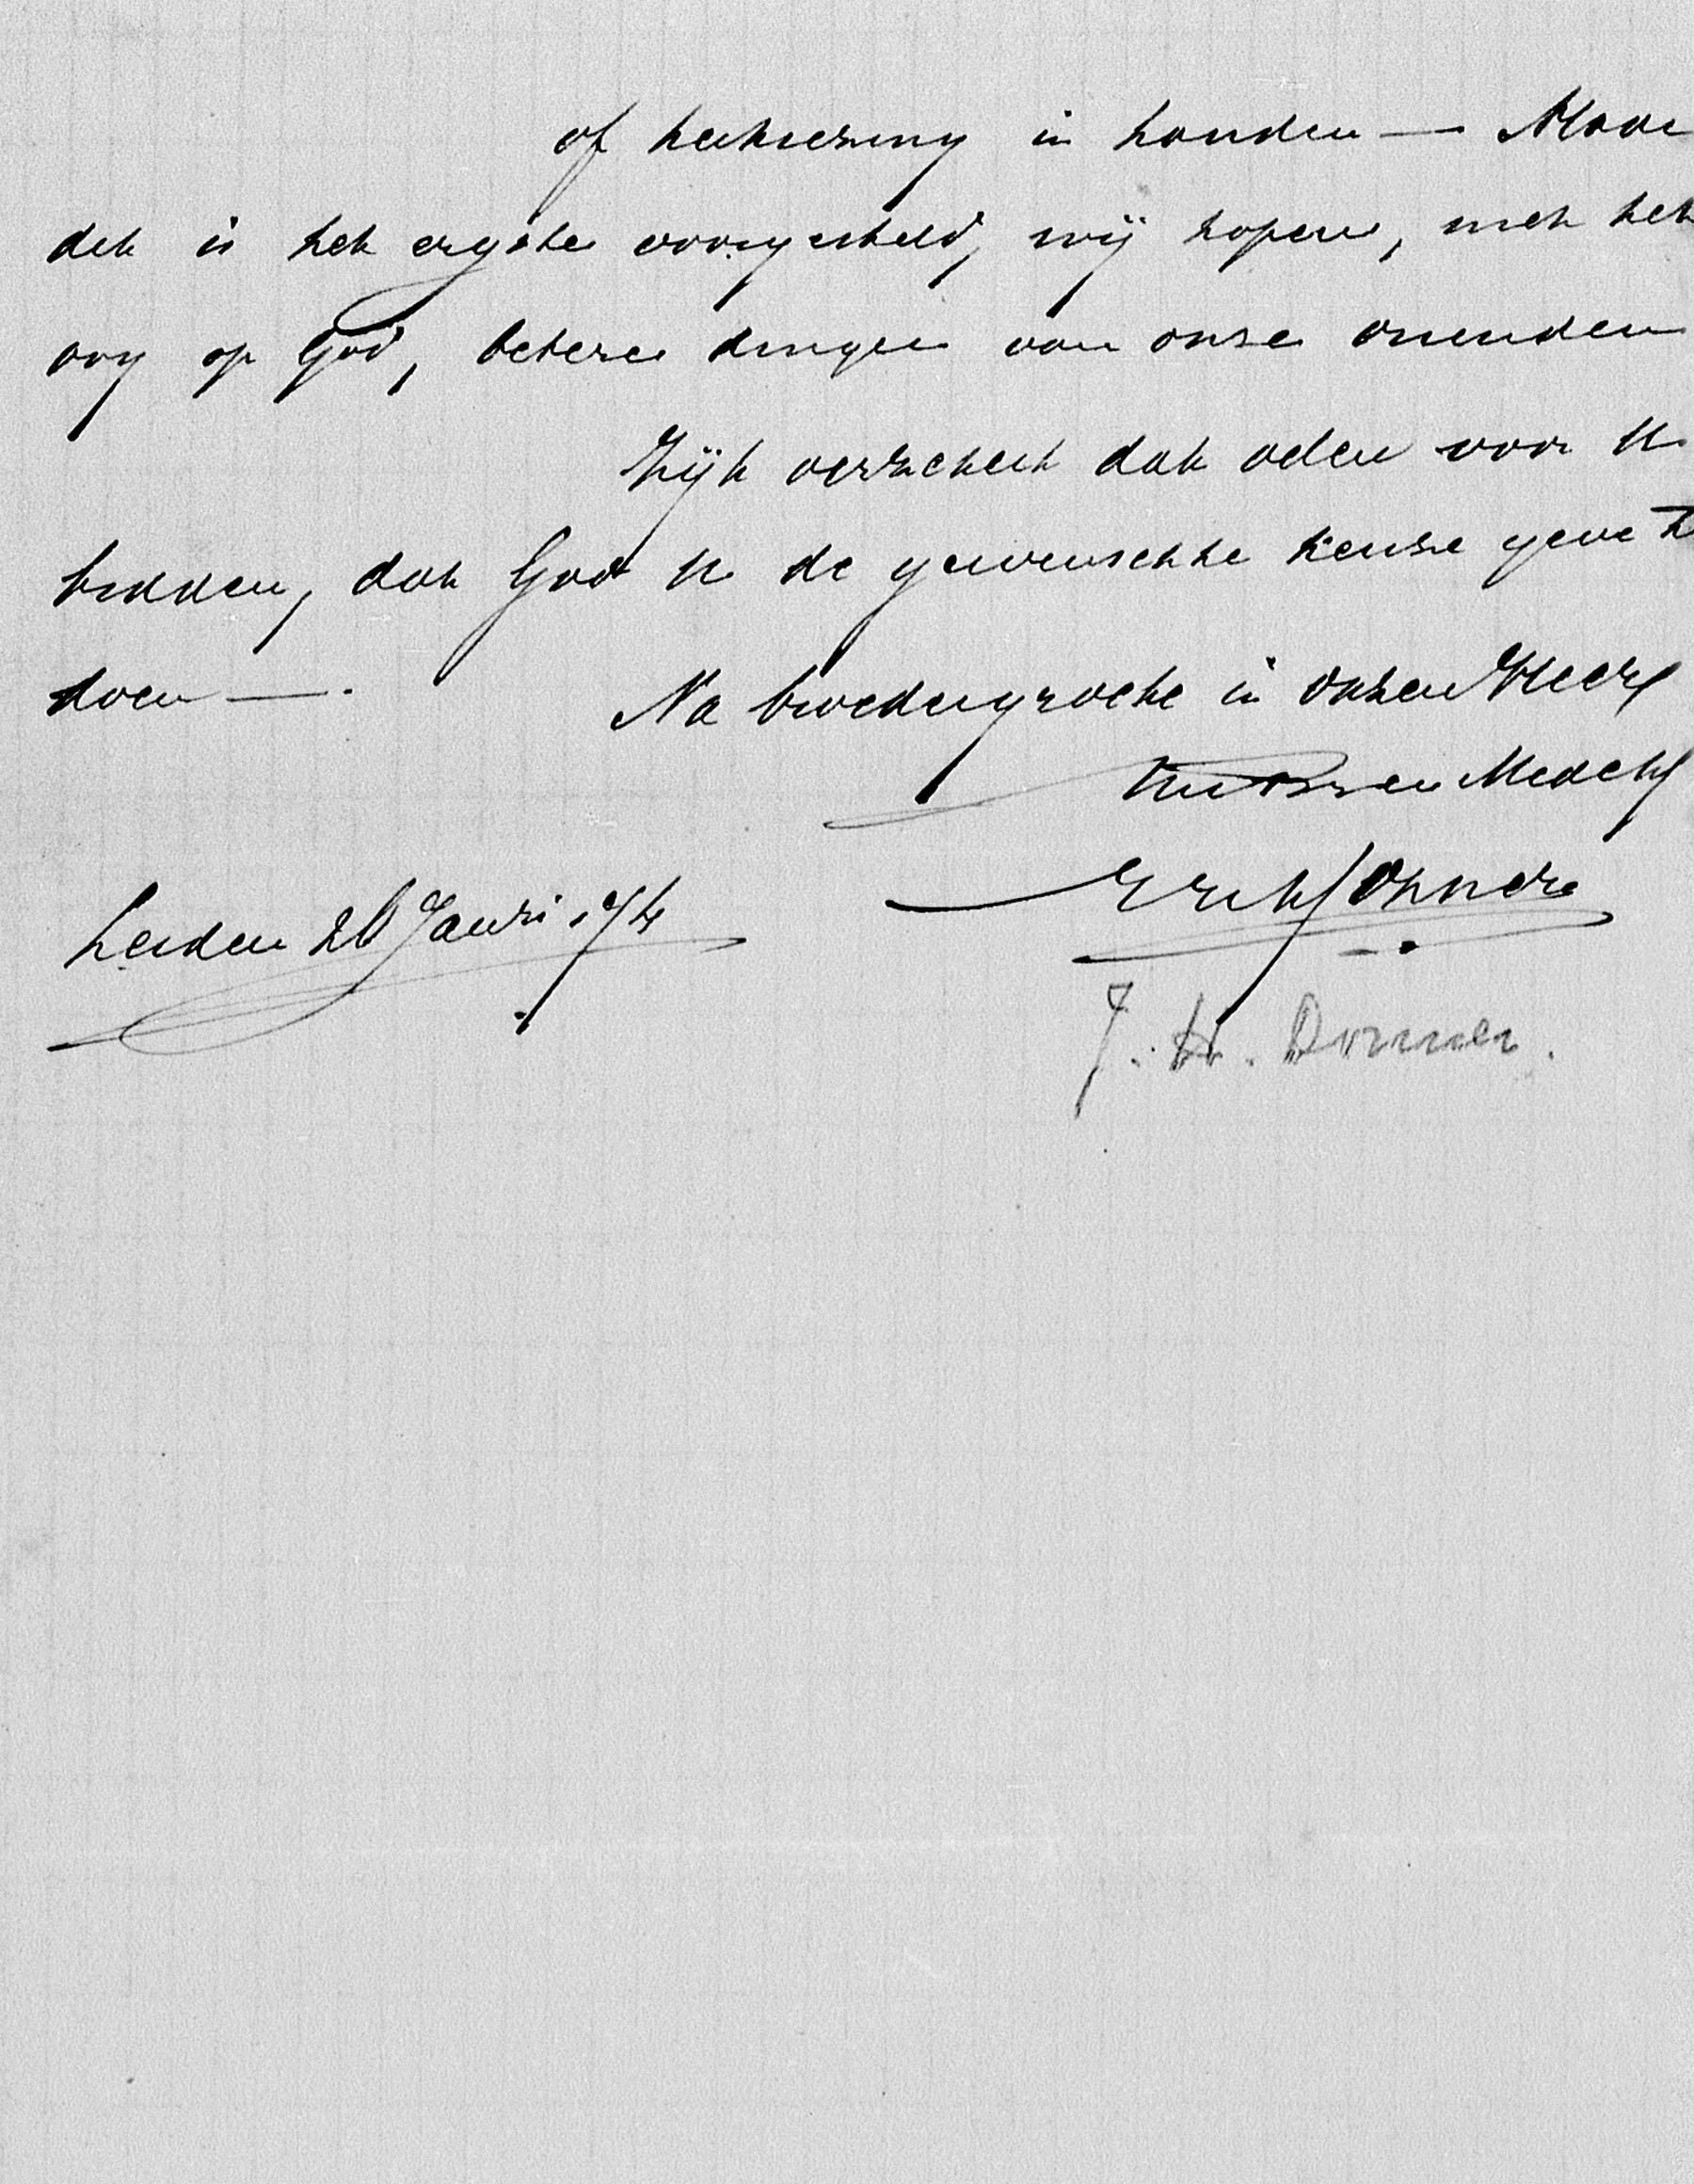 of herkiezing in handen — Maar
dit is het ergste voorgesteld, wij hopen, met het
oog op God, betere dingen van onze vrienden
Zijt verzekerd dat velen voor U
bidden, dat God U de gewenschte keuze geve te
doen —.
Na broedergroete in onzen Heer
Leiden 26 Janri. 74
J. H. Donner.